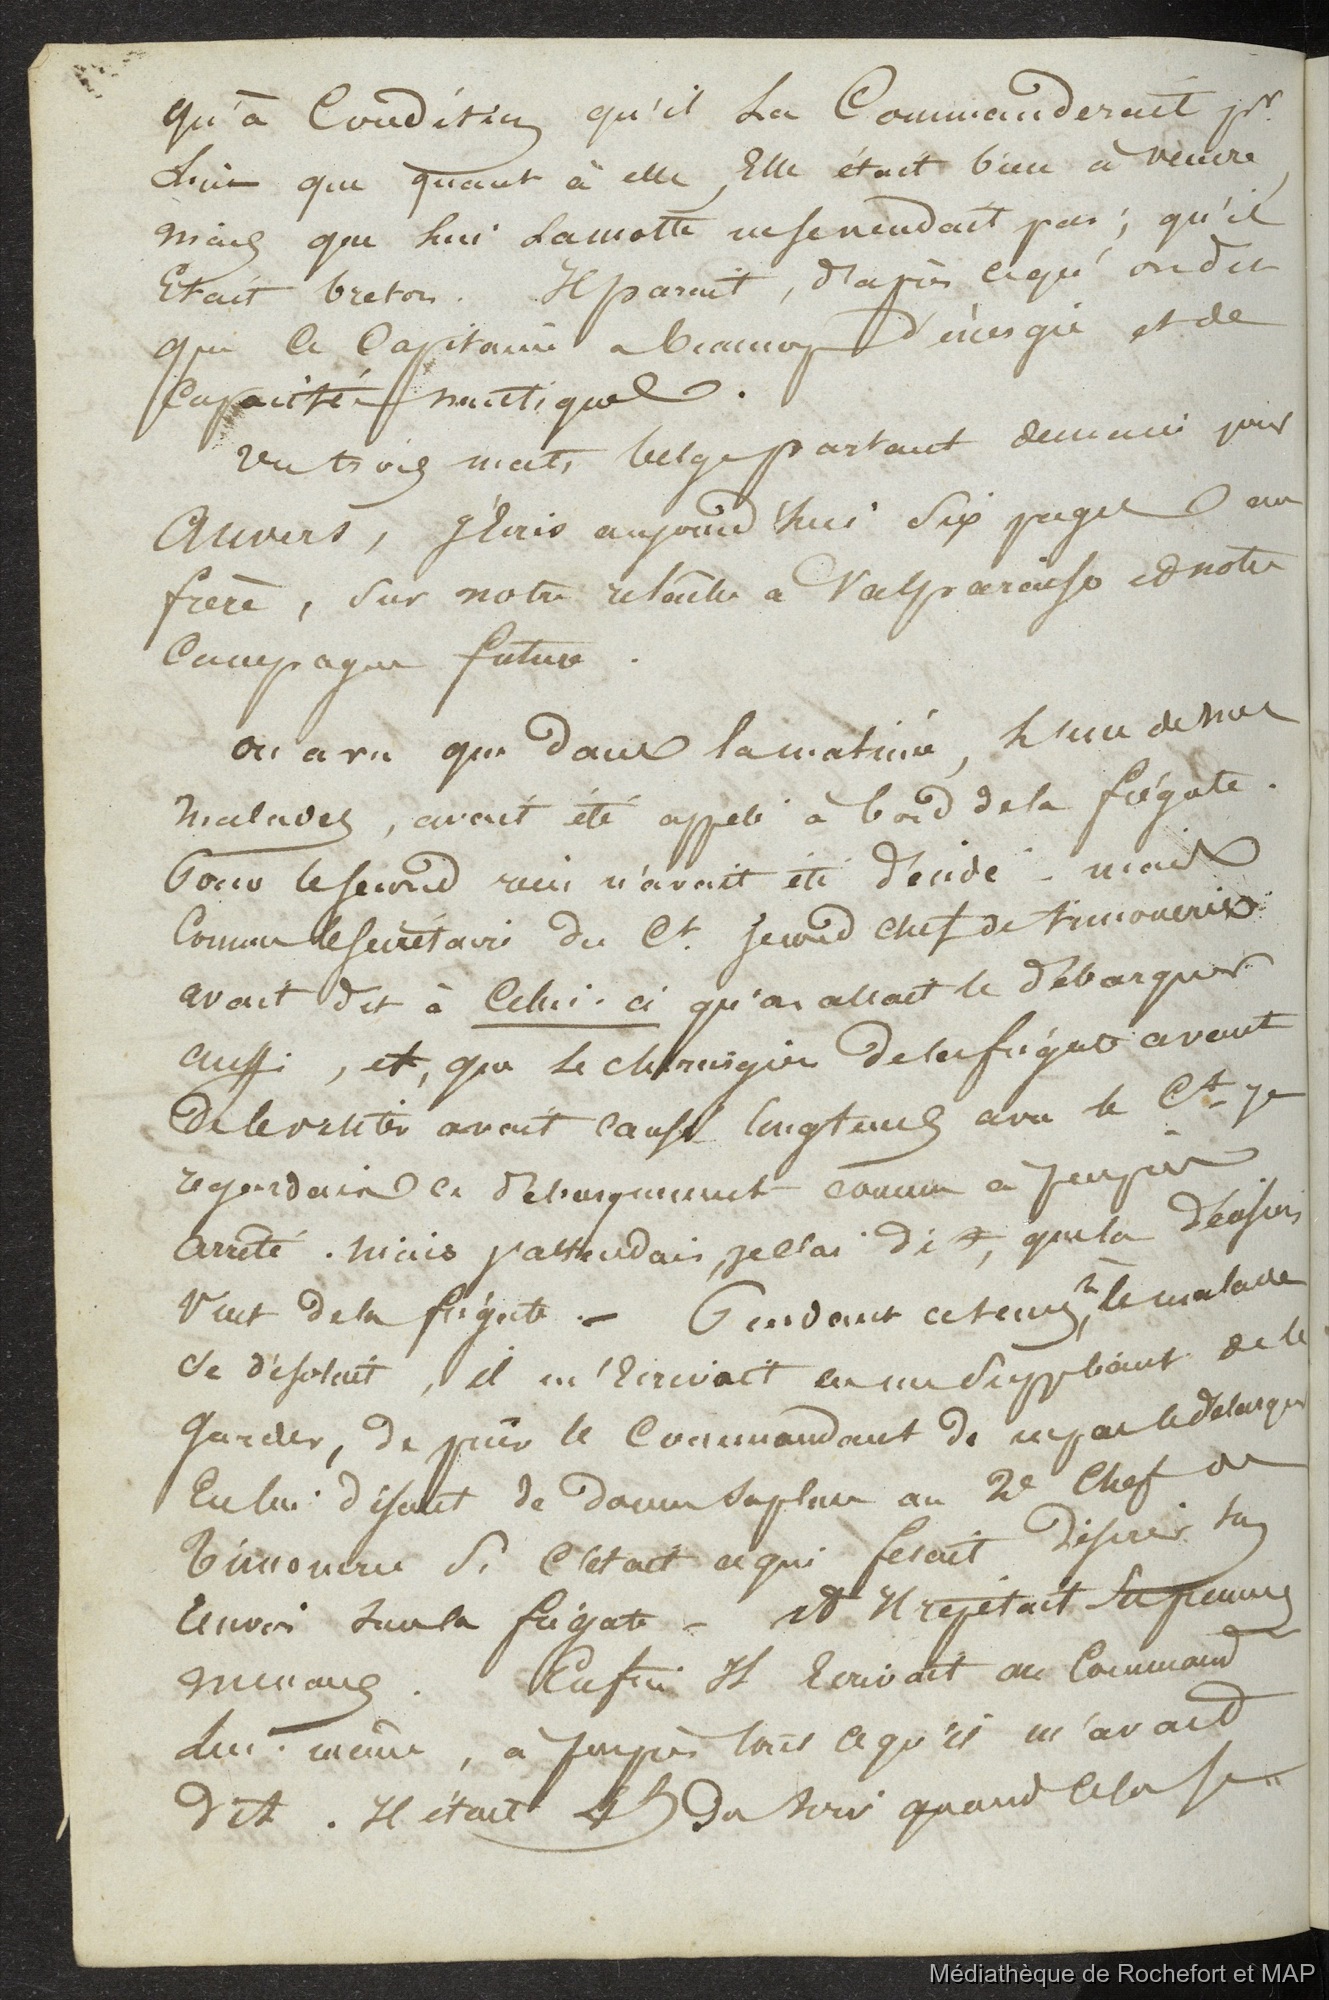 qu'à Condition qu'il La Commanderait pr.
Lui que quant à elle, Elle était bien à vendre,
mais que Lui Lamotte ne se vendait pas ; qu'il
Etait breton. Il parait, d'après ce qu'on dit
que ce Capitaine a beaucoup d'énergie et de
Capacités nautiques.
un trois mats belge partant demain pour
Anvers, j'Ecris aujourd'hui Six pages au
frère, Sur notre relâche a Valparaiso et notre
Campagne future.
on a vu que dans la matinée, L'un de nos
malades, avait été appelé à bord de la frégate.
Pour le second rien n'avait été décidé - mais
Comme le Secrétaire du Ct. second chef de timonerie
avait dit à Celui-ci qu'on allait le débarquer
aussi, et, que Le chirurgien de la frégate avant
de le visiter avait causé longtems avec le Ct. je
regardais ce débarquement comme à peu près
arrêté. mais j'attendais, je l'ai dit, que la décision
Vint de la frégate. - Pendant ce tems, le malade
se désolait, il m'Ecrivait en me Suppliant de le
Garder, de prier le Commandant de ne pas le débarquer
En lui disant de donner sa place au 2e Chef de
Timonerie Si C'était ce qui fesait désirer Son
Envoi Sur la frégate - et Il répétait
menaces. Enfin Il Ecrivait au Command
Lui-même, à peu près tout ce qu'il m'avait
dit. Il était 4h du Soir quand cela se